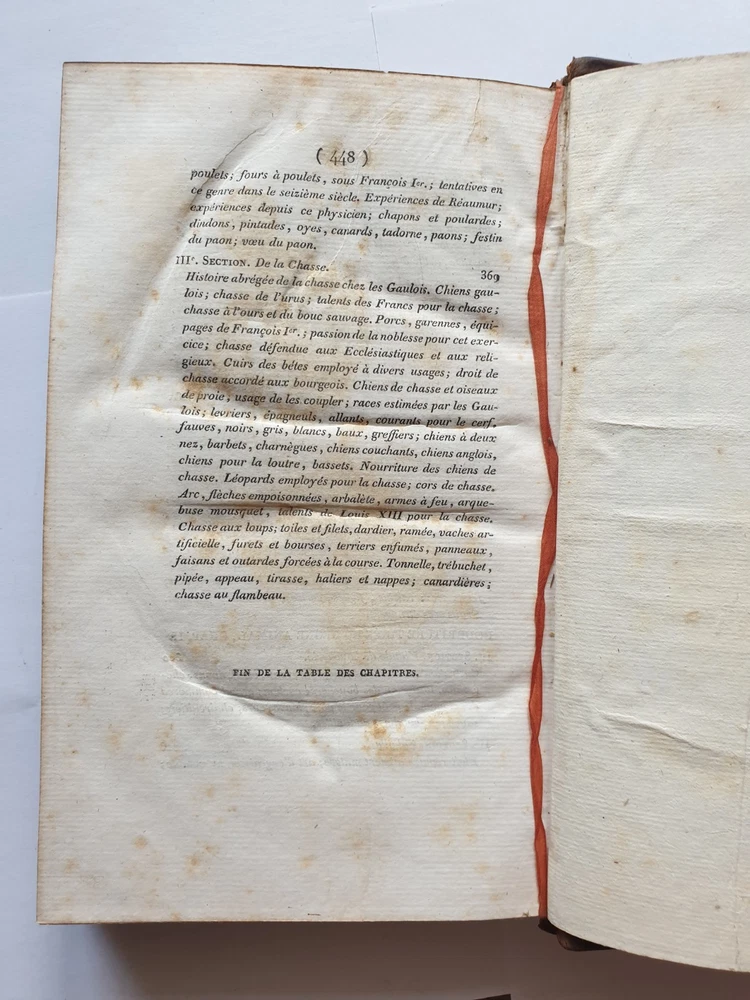 ( 448 )
poulets; fours à poulets, sous François Ier.; tentatives en
ce genre dans le seizième siècle. Expériences de Réaumur;
expériences depuis ce physicien; chapons et poulardes;
dindons, pintades, oyes, canards, tadorne, paons; festin
du paon; vœu du paon.
IIIe. SECTION. De la Chasse. 369
Histoire abrégée de la chasse chez les Gaulois. Chiens gau-
lois; chasse de l'urus; talents des Francs pour la chasse;
chasse à l'ours et du bouc sauvage. Porcs, garennes, équi-
pages de François Ier.; passion de la noblesse pour cet exer-
cice; chasse défendue aux Ecclésiastiques et aux reli-
gieux. Cuirs des bêtes employé à divers usages; droit de
chasse accordé aux bourgeois. Chiens de chasse et oiseaux
de proie, usage de les coupler; races estimées par les Gau-
lois; levriers, épagneuls, allants, courants pour le cerf,
fauves, noirs, gris, blancs, baux, greffiers; chiens à deux
nez, barbets, charnègues, chiens couchants, chiens anglois,
chiens pour la loutre, bassets. Nourriture des chiens de
chasse. Léopards employés pour la chasse; cors de chasse.
Arc, flèches empoisonnées, arbalète, armes à feu, arque-
buse mousquet, talents de Louis XIII pour la chasse.
Chasse aux loups; toiles et filets, dardier, ramée, vaches ar-
tificielle, furets et bourses, terriers enfumés, panneaux,
faisans et outardes forcées à la course. Tonnelle, trébuchet,
pipée, appeau, tirasse, haliers et nappes; canardières;
chasse au flambeau.
FIN DE LA TABLE DES CHAPITRES.